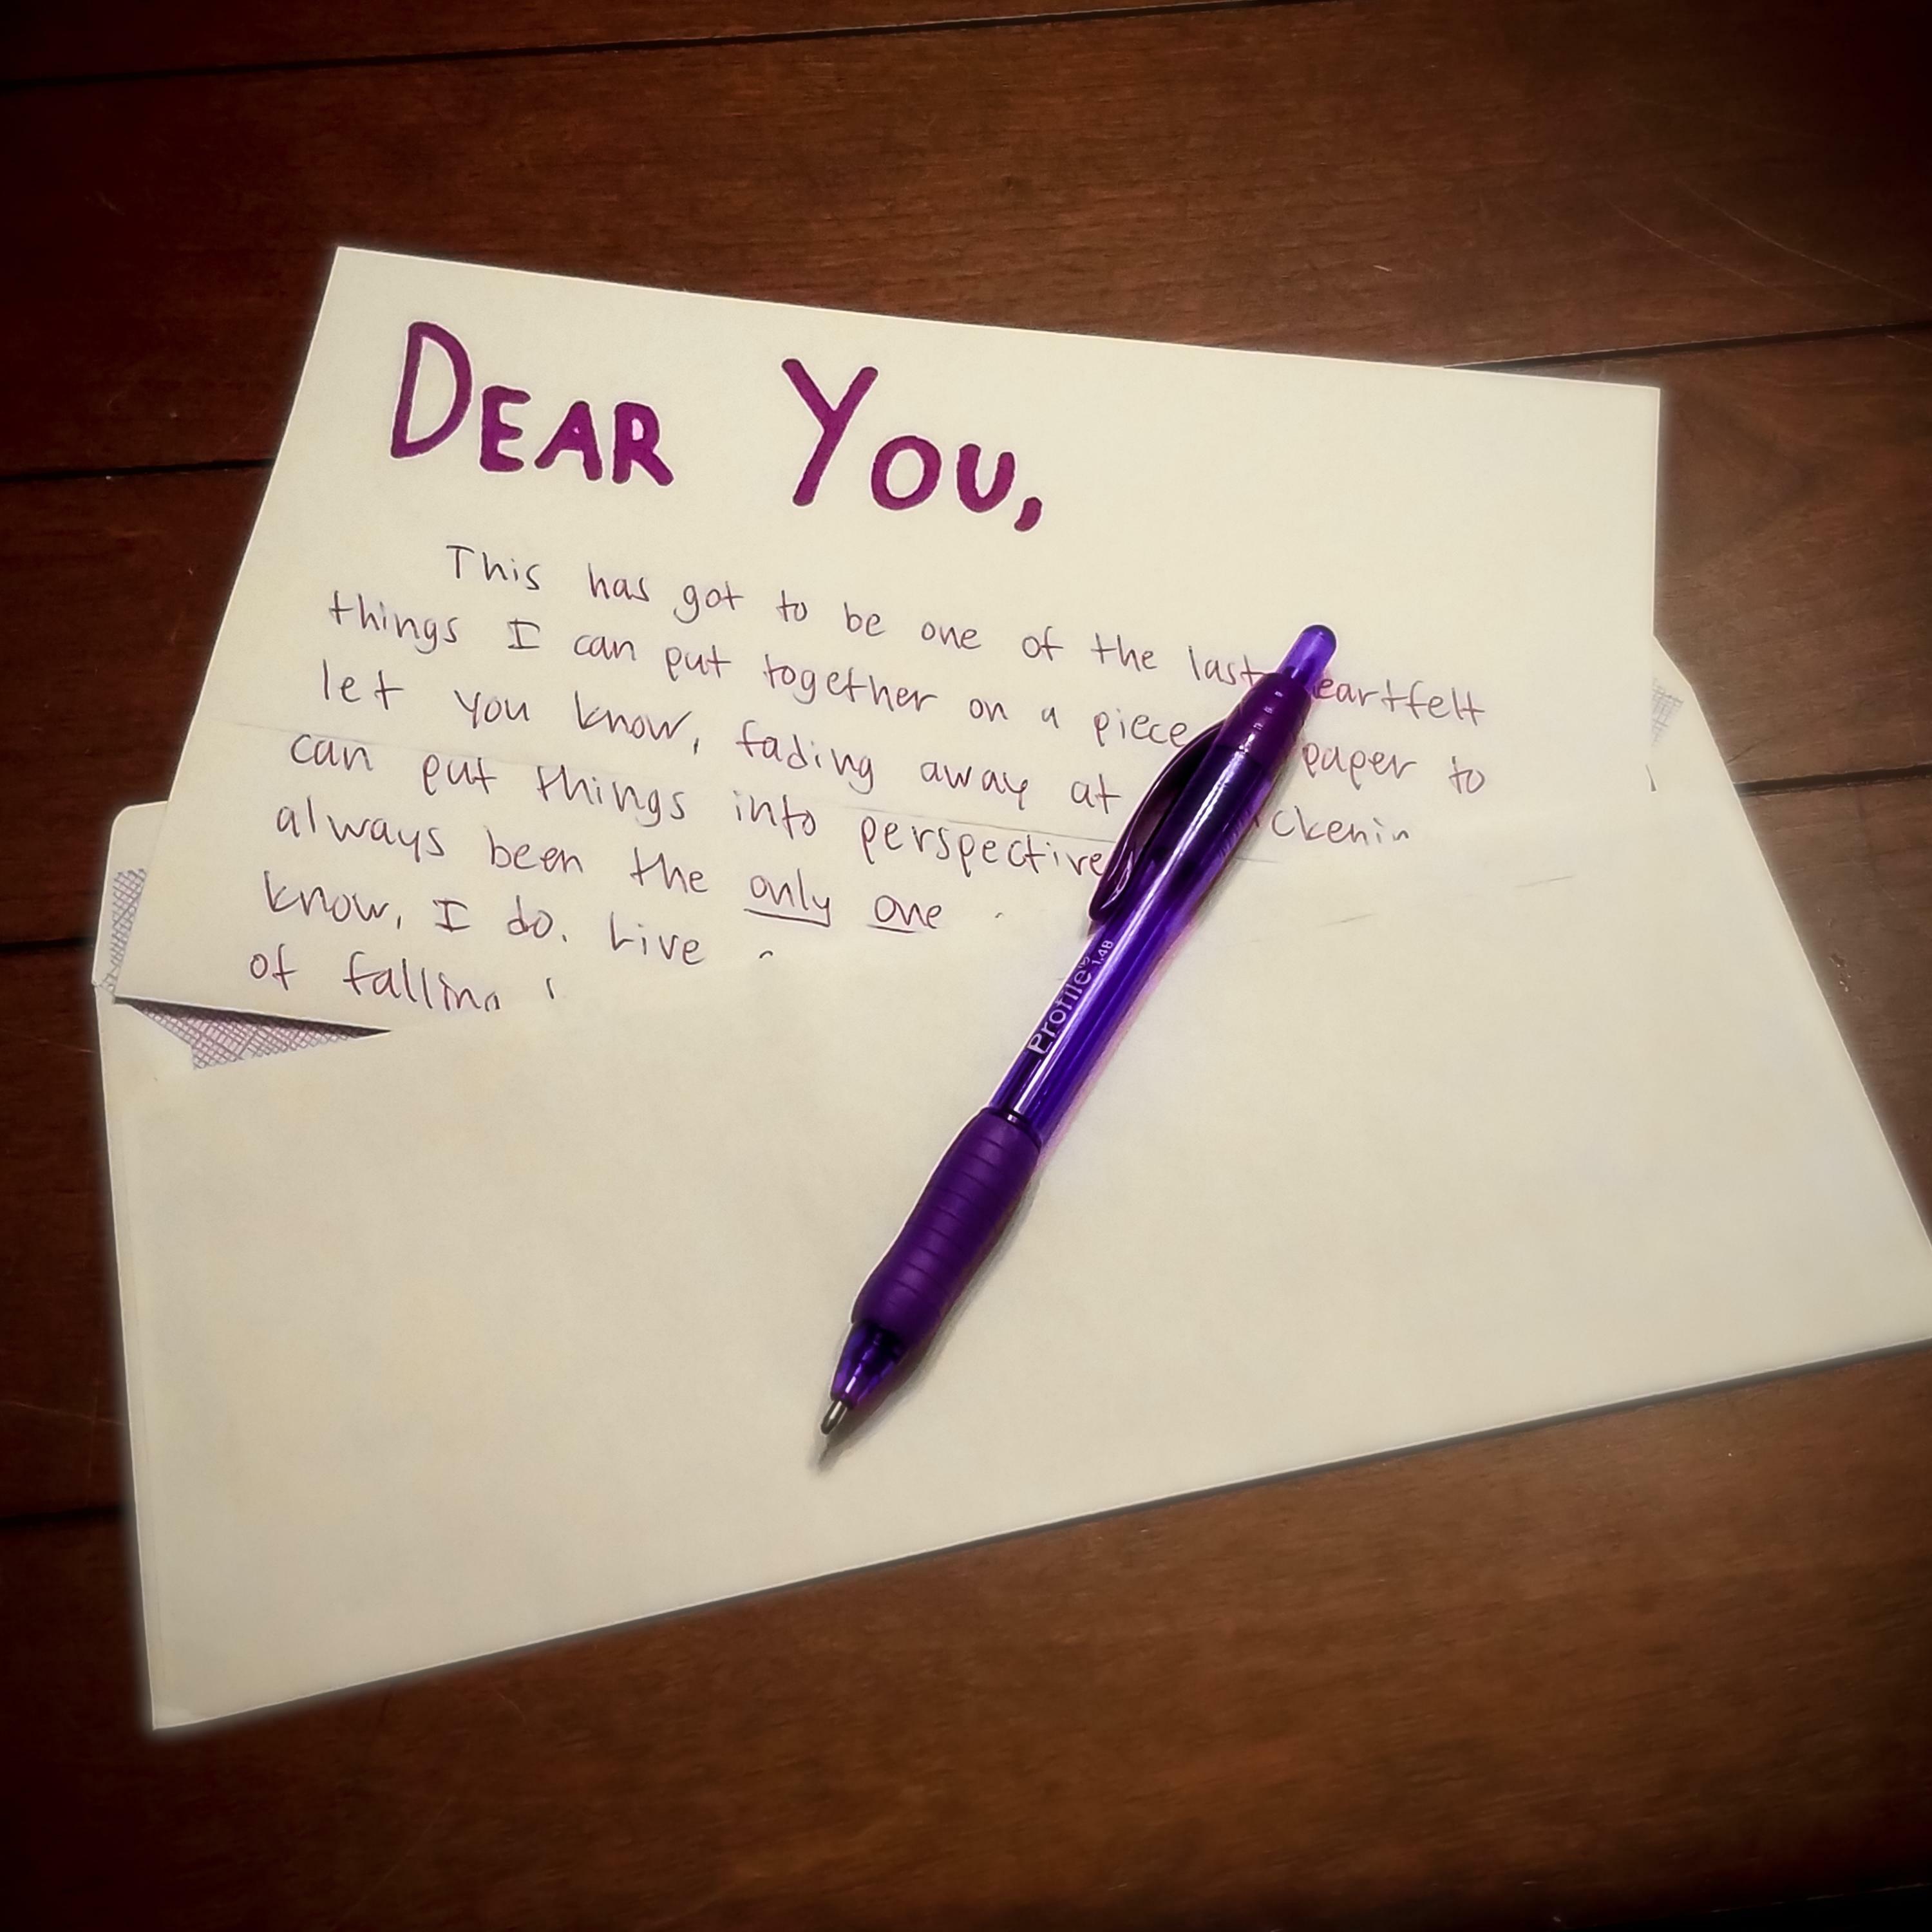 DEAR YOU,
This has got to be one of the last eartfelt
things I can put together on a piece paper to
let you know, fading away at ckenin
can put things into perspective
always been the only one
know, I do. Live
of falling
Profile 1.4B